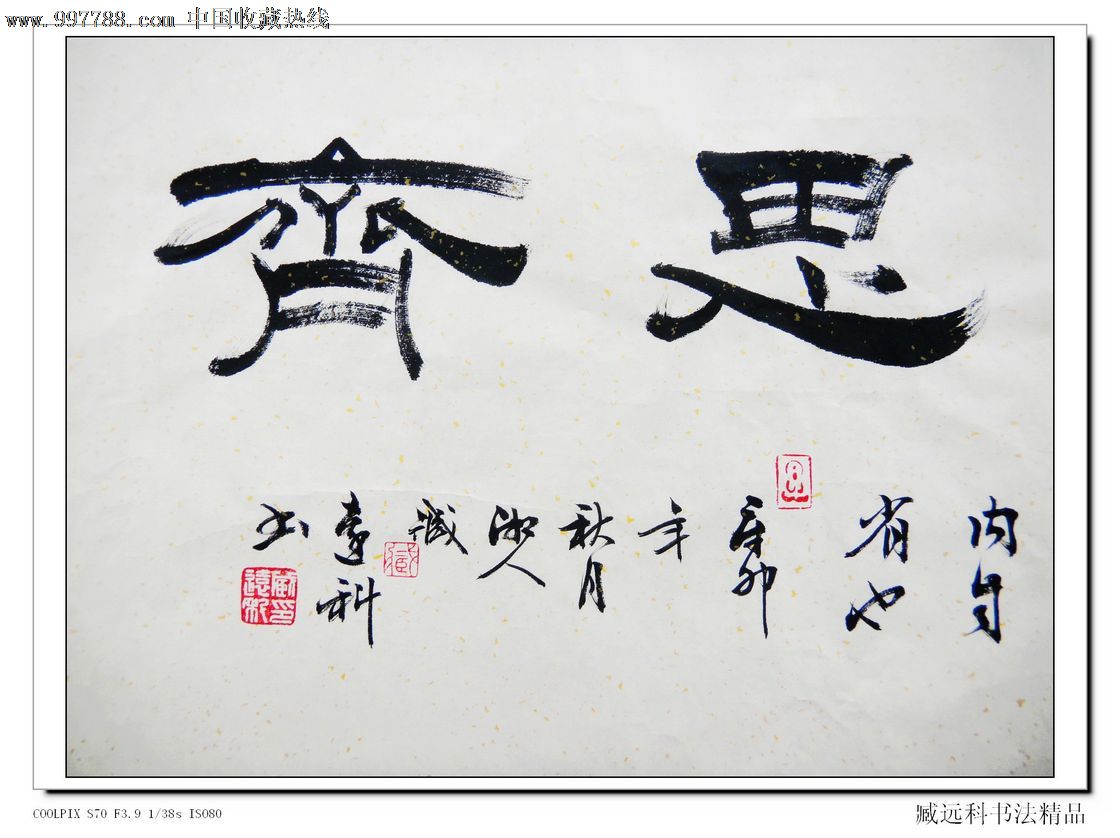 www.997788.com 中国收藏热线
思齊
内自
省也
辛卯
年
秋月
人
臧
遠科
书
臧印遠科
COOLPIX S70 F3.9 1/38s ISO80
臧远科书法精品